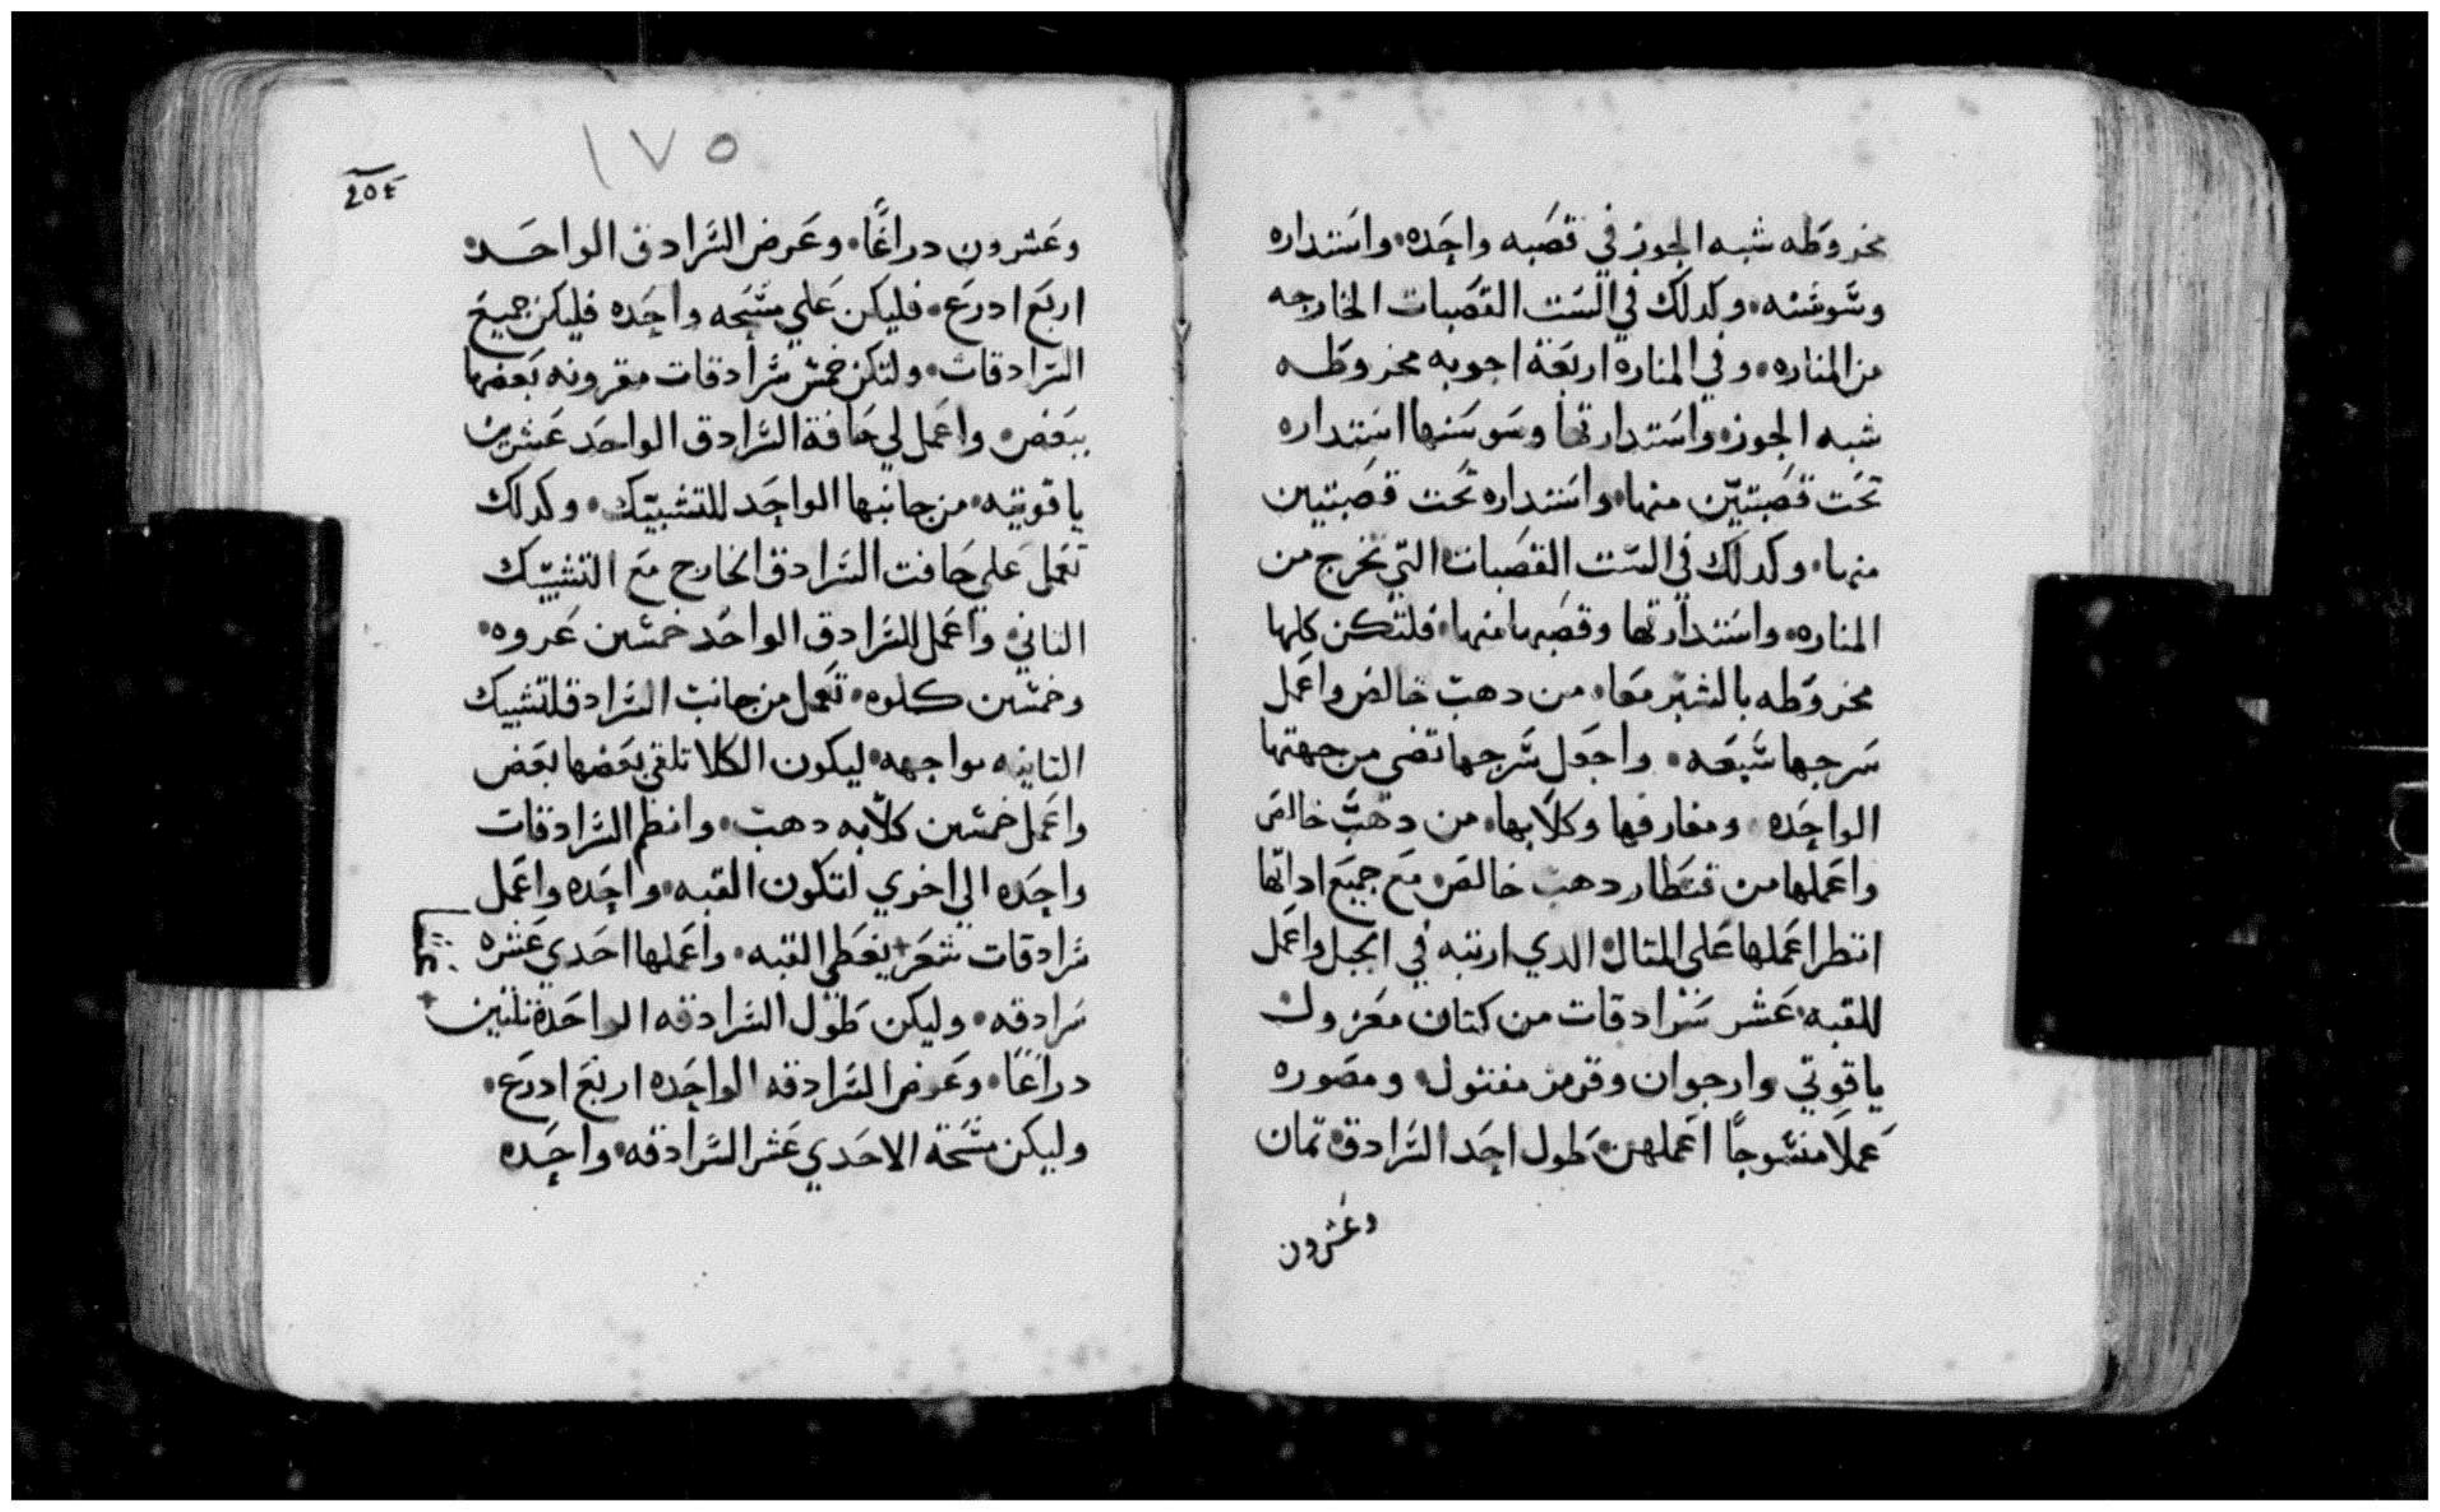 مخروطه شبه الجوز في قصبه واحده واستداره
وسوسنه وكدلك في الست القصبات الخارجه
من المناره وفي المناره اربعة اجوبه مخروطه
شبه الجوز واستدارتها وسوسنها استداره
تحت قصبتين منها واستداره تحت قصبتين
منها وكدلك في الست القصبات التي تخرج من
المناره واستدارتها وقصبها منها فلتكن كلها
مخروطه بالشبر معا من دهب خالص واعمل
سرجها سبعه واجعل سرجها تضي من جهتها
الواحده ومغارفها وكلابها من دهب خالص
واعملها من قنطار دهب خالص مع جميع اداتها
انظر اعملها على المثال الدي اريته في الجبل واعمل
للقبه عشر سرادقات من كتان مغزول
ياقوتي وارجوان وقرمز مفتول ومصوره
عملا منسوجا اعملهن طول احد السرادق تمان
وعشرون
١٧٥
وعشرون دراعا وعرض السرادق الواحد
اربع ادرع فليكن علي مسحه واحده فليكن جميع
السرادقات ولتكن خمس سرادقات مقرونه بعضها
ببعض واعمل لي حافة السرادق الواحد عشرين
ياقوتيه من جانبها الواحد للتشبيك وكدلك
تعمل علي حافت السرادق الخارج مع التشبيك
الثاني واعمل للسرادق الواحد خمسين عروه
وخمسين كلوه تعمل من جانب السرادق لتشبيك
الثانيه مواجهه ليكون الكلا تلقي بعضها بعض
واعمل خمسين كلابه دهب وانظم السرادقات
واحده الي اخري لتكون القبه واحده واعمل
سرادقات شعر يغطي القبه واعملها احدي عشره
سرادقه وليكن طول السرادقه الواحدة ثلثين
دراعا وعرض السرادقه الواحده اربع ادرع
وليكن مسحة الاحدي عشر السرادقه واحده